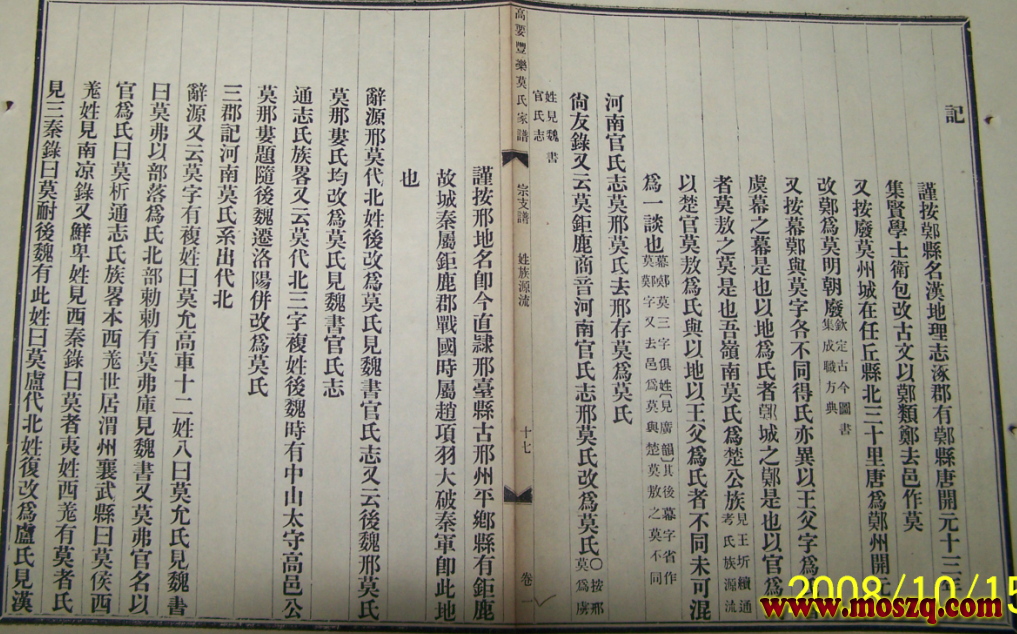 記
謹按鄚縣名漢地理志涿郡有鄚縣唐開元十三年
集賢學士衛包改古文以鄚類鄭去邑作莫
又按廢莫州城在任丘縣北三十里唐爲鄚州開元
改鄭爲莫明朝廢欽定古今圖書集成職方典
又按幕鄚與莫字各不同得氏亦異以王父字爲
虞幕之幕是也以地爲氏者鄚城之鄚是也以官爲
者莫敖之莫是也吾嶺南莫氏爲楚公族見王圻續通考氏族源流
以楚官莫敖爲氏與以地以王父爲氏者不同未可混
爲一談也幕鄚莫三字俱姓見廣韻其後幕字省作莫鄚字又去邑爲莫與楚莫敖之莫不同
河南官氏志莫邢莫氏去邢存莫爲莫氏
尙友錄又云莫鉅鹿商音河南官氏志邢莫氏改爲莫氏○按邢莫爲虜
姓見魏書官氏志
高要豐樂莫氏家譜
宗支譜 姓族源流
十七
卷一
謹按邢地名卽今直隷邢臺縣古邢州平鄕縣有鉅鹿
故城秦屬鉅鹿郡戰國時屬趙項羽大破秦軍卽此地
也
辭源邢莫代北姓後改爲莫氏見魏書官氏志又云後魏邢莫氏
莫那婁氏均改爲莫氏見魏書官氏志
通志氏族畧又云莫代北三字複姓後魏時有中山太守高邑公
莫那婁題隨後魏遷洛陽併改爲莫氏
三郡記河南莫氏系出代北
辭源又云莫字有複姓曰莫允高車十二姓八曰莫允氏見魏書
曰莫弗以部落爲氏北部勅勅有莫弗庫見魏書又莫弗官名以
官爲氏曰莫析通志氏族畧本西羗世居渭州襄武縣曰莫侯西
羗姓見南凉錄又鮮卑姓見西秦錄曰莫者夷姓西羗有莫者氏
見三秦錄曰莫耐後魏有此姓曰莫盧代北姓復改爲盧氏見漢
2008/10/15
www.moszq.com